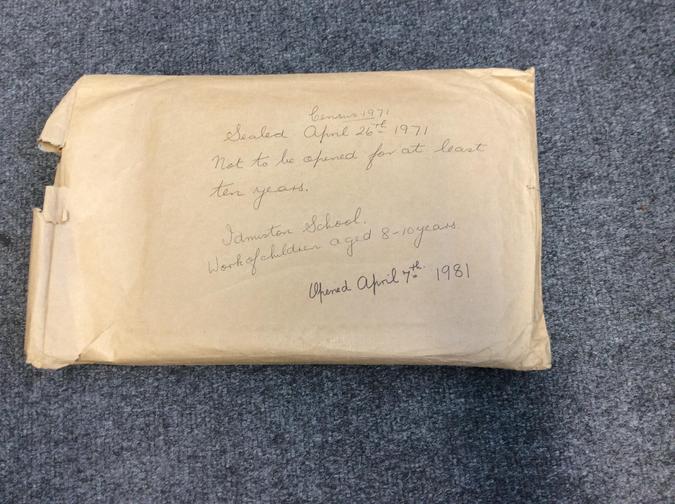 Census 1971
Sealed April 26th 1971
Not to be opened for at least
ten years.
Idmiston School.
Work of children aged 8-10 years.
Opened April 7th. 1981